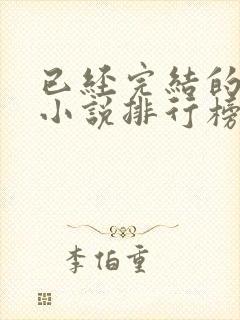 已經完結的
小說排行榜
李伯重